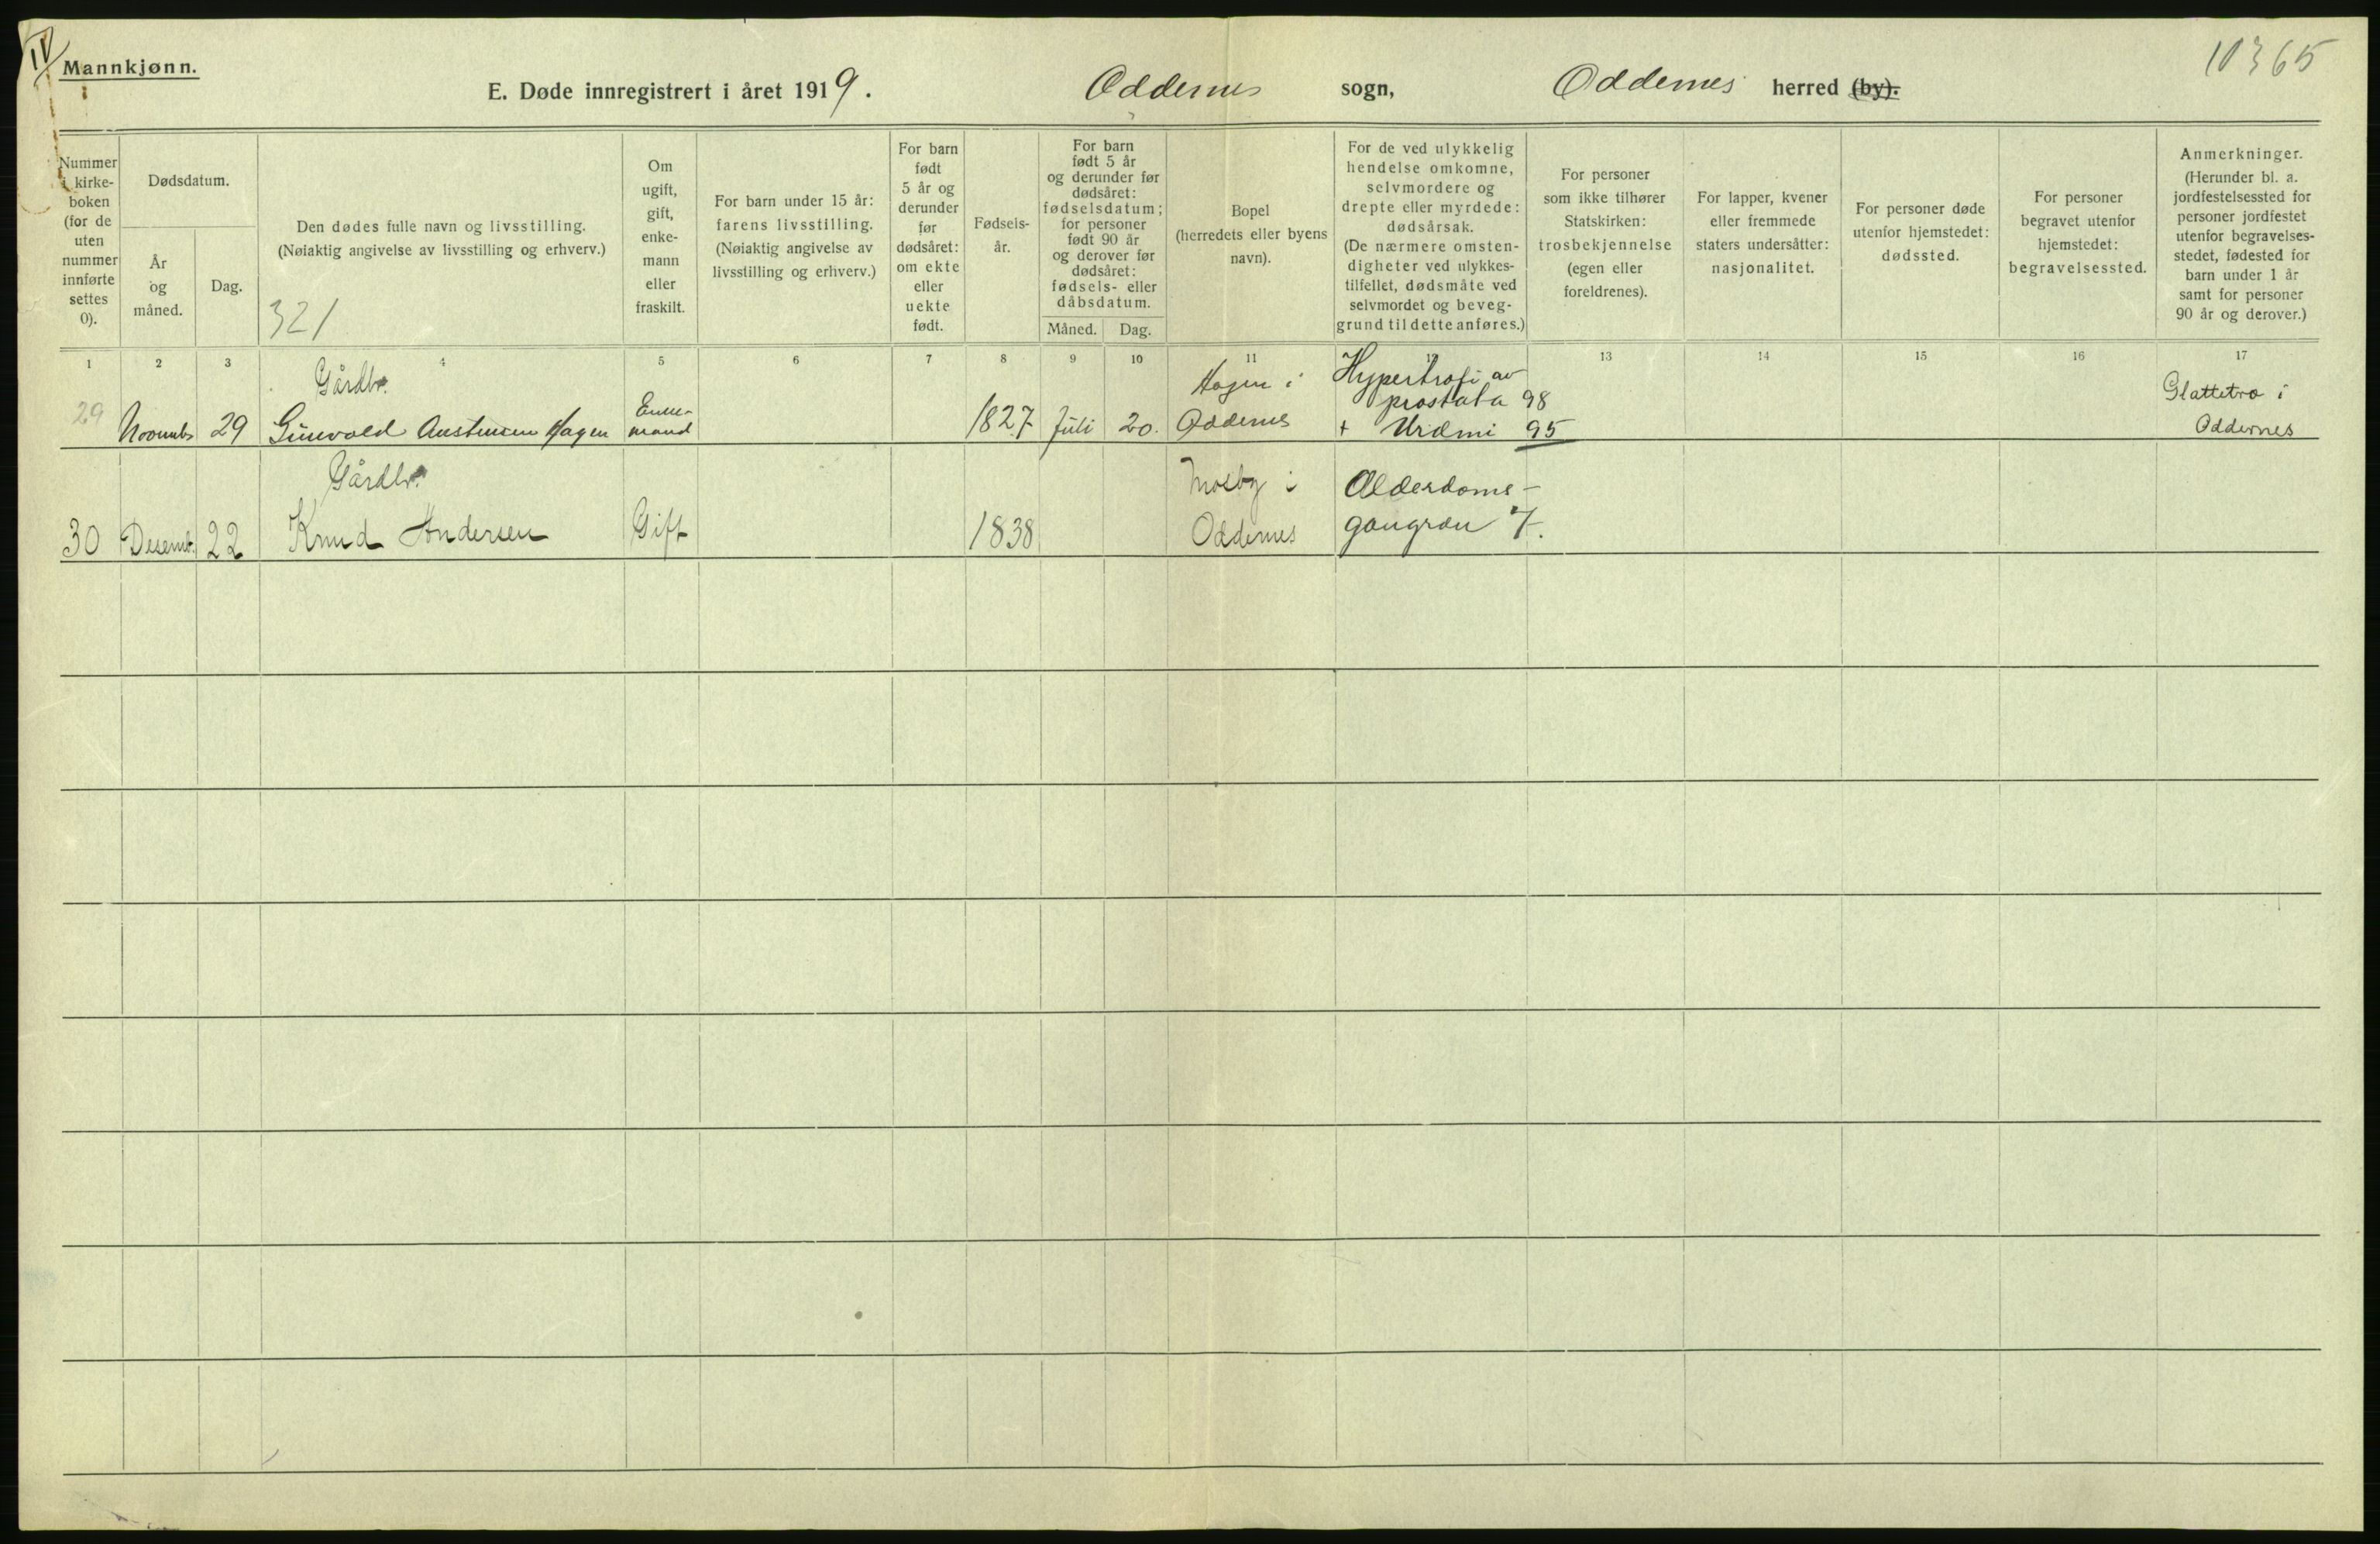 IV
Mannkjønn.
10365
E. Døde innregistrert i året 1919. Oddernes sogn, Oddernes herred (by).
Nummer
i kirke-
boken
(for de
uten
nummer
innførte
settes
0).
Dødsdatum.
År
og
måned.
Dag.
Den dødes fulle navn og livsstilling.
(Nøiaktig angivelse av livsstilling og erhverv.)
321
Om
ugift,
gift,
enke-
mann
eller
fraskilt.
For barn under 15 år:
farens livsstilling.
(Nøiaktig angivelse av
livsstilling og erhverv.)
For barn
født
5 år og
derunder
før
dødsåret:
om ekte
eller
uekte
født.
Fødsels-
år.
For barn
født 5 år
og derunder før
dødsåret:
fødselsdatum;
for personer
født 90 år
og derover før
dødsåret:
fødsels- eller
dåbsdatum.
Måned. Dag.
Bopel
(herredets eller byens
navn).
For de ved ulykkelig
hendelse omkomne,
selvmordere og
drepte eller myrdede:
dødsårsak.
(De nærmere omsten-
digheter ved ulykkes-
tilfellet, dødsmåte ved
selvmordet og beveg-
grund til dette anføres.)
For personer
som ikke tilhører
Statskirken:
trosbekjennelse
(egen eller
foreldrenes).
For lapper, kvener
eller fremmede
staters undersåtter:
nasjonalitet.
For personer døde
utenfor hjemstedet:
dødssted.
For personer
begravet utenfor
hjemstedet:
begravelsessted.
Anmerkninger.
(Herunder bl. a.
jordfestelsessted for
personer jordfestet
utenfor begravelses-
stedet, fødested for
barn under 1 år
samt for personer
90 år og derover.)
1 2 3 4 5 6 7 8 9 10 11 12 13 14 15 16 17
Gårdbr. Hagen i Hypertrofi av
Enke- prostata 98 Glattetra i
29 Novemb 29 Gunvald Austensen Hagen mand 1827 Juli 20. Oddernes + Uræmi 95 Oddernes
Gårdbr. Mosby i Alderdoms-
30 Desemb. 22 Knud Andersen Gift 1838 Oddernes gangræn 7.